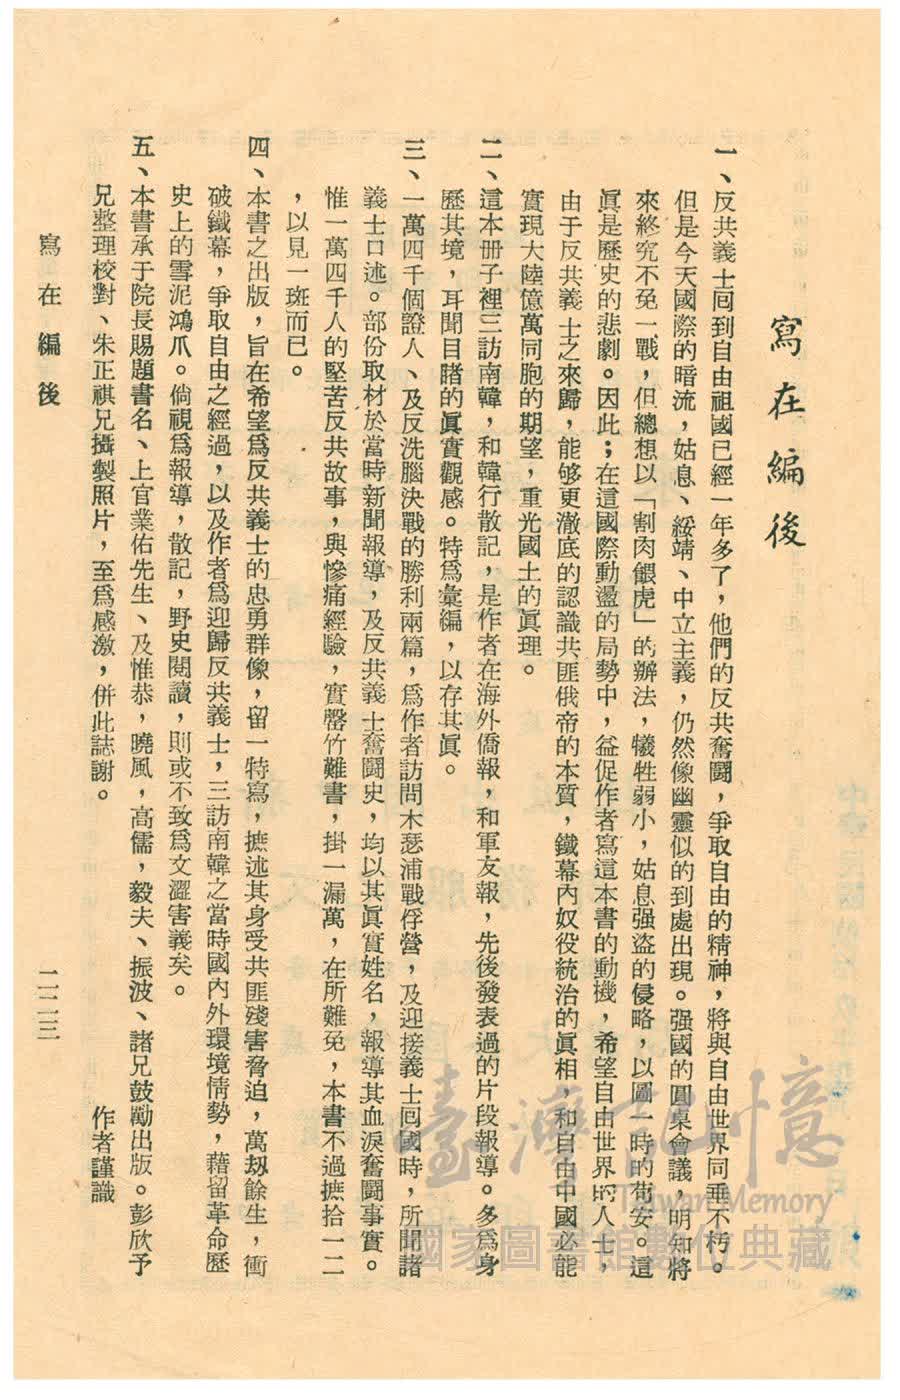 寫在編後
一、反共義士囘到自由祖國已經一年多了，他們的反共奮鬪，爭取自由的精神，將與自由世界同垂不朽。
但是今天國際的暗流，姑息、綏靖、中立主義，仍然像幽靈似的到處出現。强國的圓桌會議，明知將
來終究不免一戰，但總想以「割肉餵虎」的辦法，犧牲弱小，姑息强盜的侵略，以圖一時的苟安。這
眞是歷史的悲劇。因此；在這國際動盪的局勢中，益促作者寫這本書的動機，希望自由世界的人士，
由于反共義士之來歸，能够更澈底的認識共匪俄帝的本質，鐵幕內奴役統治的眞相，和自由中國必能
實現大陸億萬同胞的期望，重光國土的眞理。
二、這本册子裡三訪南韓，和韓行散記，是作者在海外僑報，和軍友報，先後發表過的片段報導。多爲身
歷其境，耳聞目睹的眞實觀感。特爲彙編，以存其眞。
三、一萬四千個證人、及反洗腦決戰的勝利兩篇，爲作者訪問木瑟浦戰俘營，及迎接義士囘國時，所聞諸
義士口述。部份取材於當時新聞報導，及反共義士奮鬪史，均以其眞實姓名，報導其血淚奮鬪事實。
惟一萬四千人的堅苦反共故事，與慘痛經驗，實罄竹難書，掛一漏萬，在所難免，本書不過摭拾一二
，以見一斑而已。
四、本書之出版，旨在希望爲反共義士的忠勇群像，留一特寫，摭述其身受共匪殘害脅迫，萬刼餘生，衝
破鐵幕，爭取自由之經過，以及作者爲迎歸反共義士，三訪南韓之當時國內外環境情勢，藉留革命歷
史上的雪泥鴻爪。倘視爲報導，散記，野史閱讀，則或不致爲文澀害義矣。
五、本書承于院長賜題書名、上官業佑先生、及惟恭，曉風，高儒，毅夫、振波、諸兄鼓勵出版。彭欣予
兄整理校對、朱正祺兄攝製照片，至爲感激，併此誌謝。
作者謹識
寫在編後
一二三
臺灣記憶
Taiwan Memory
國家圖書館數位典藏